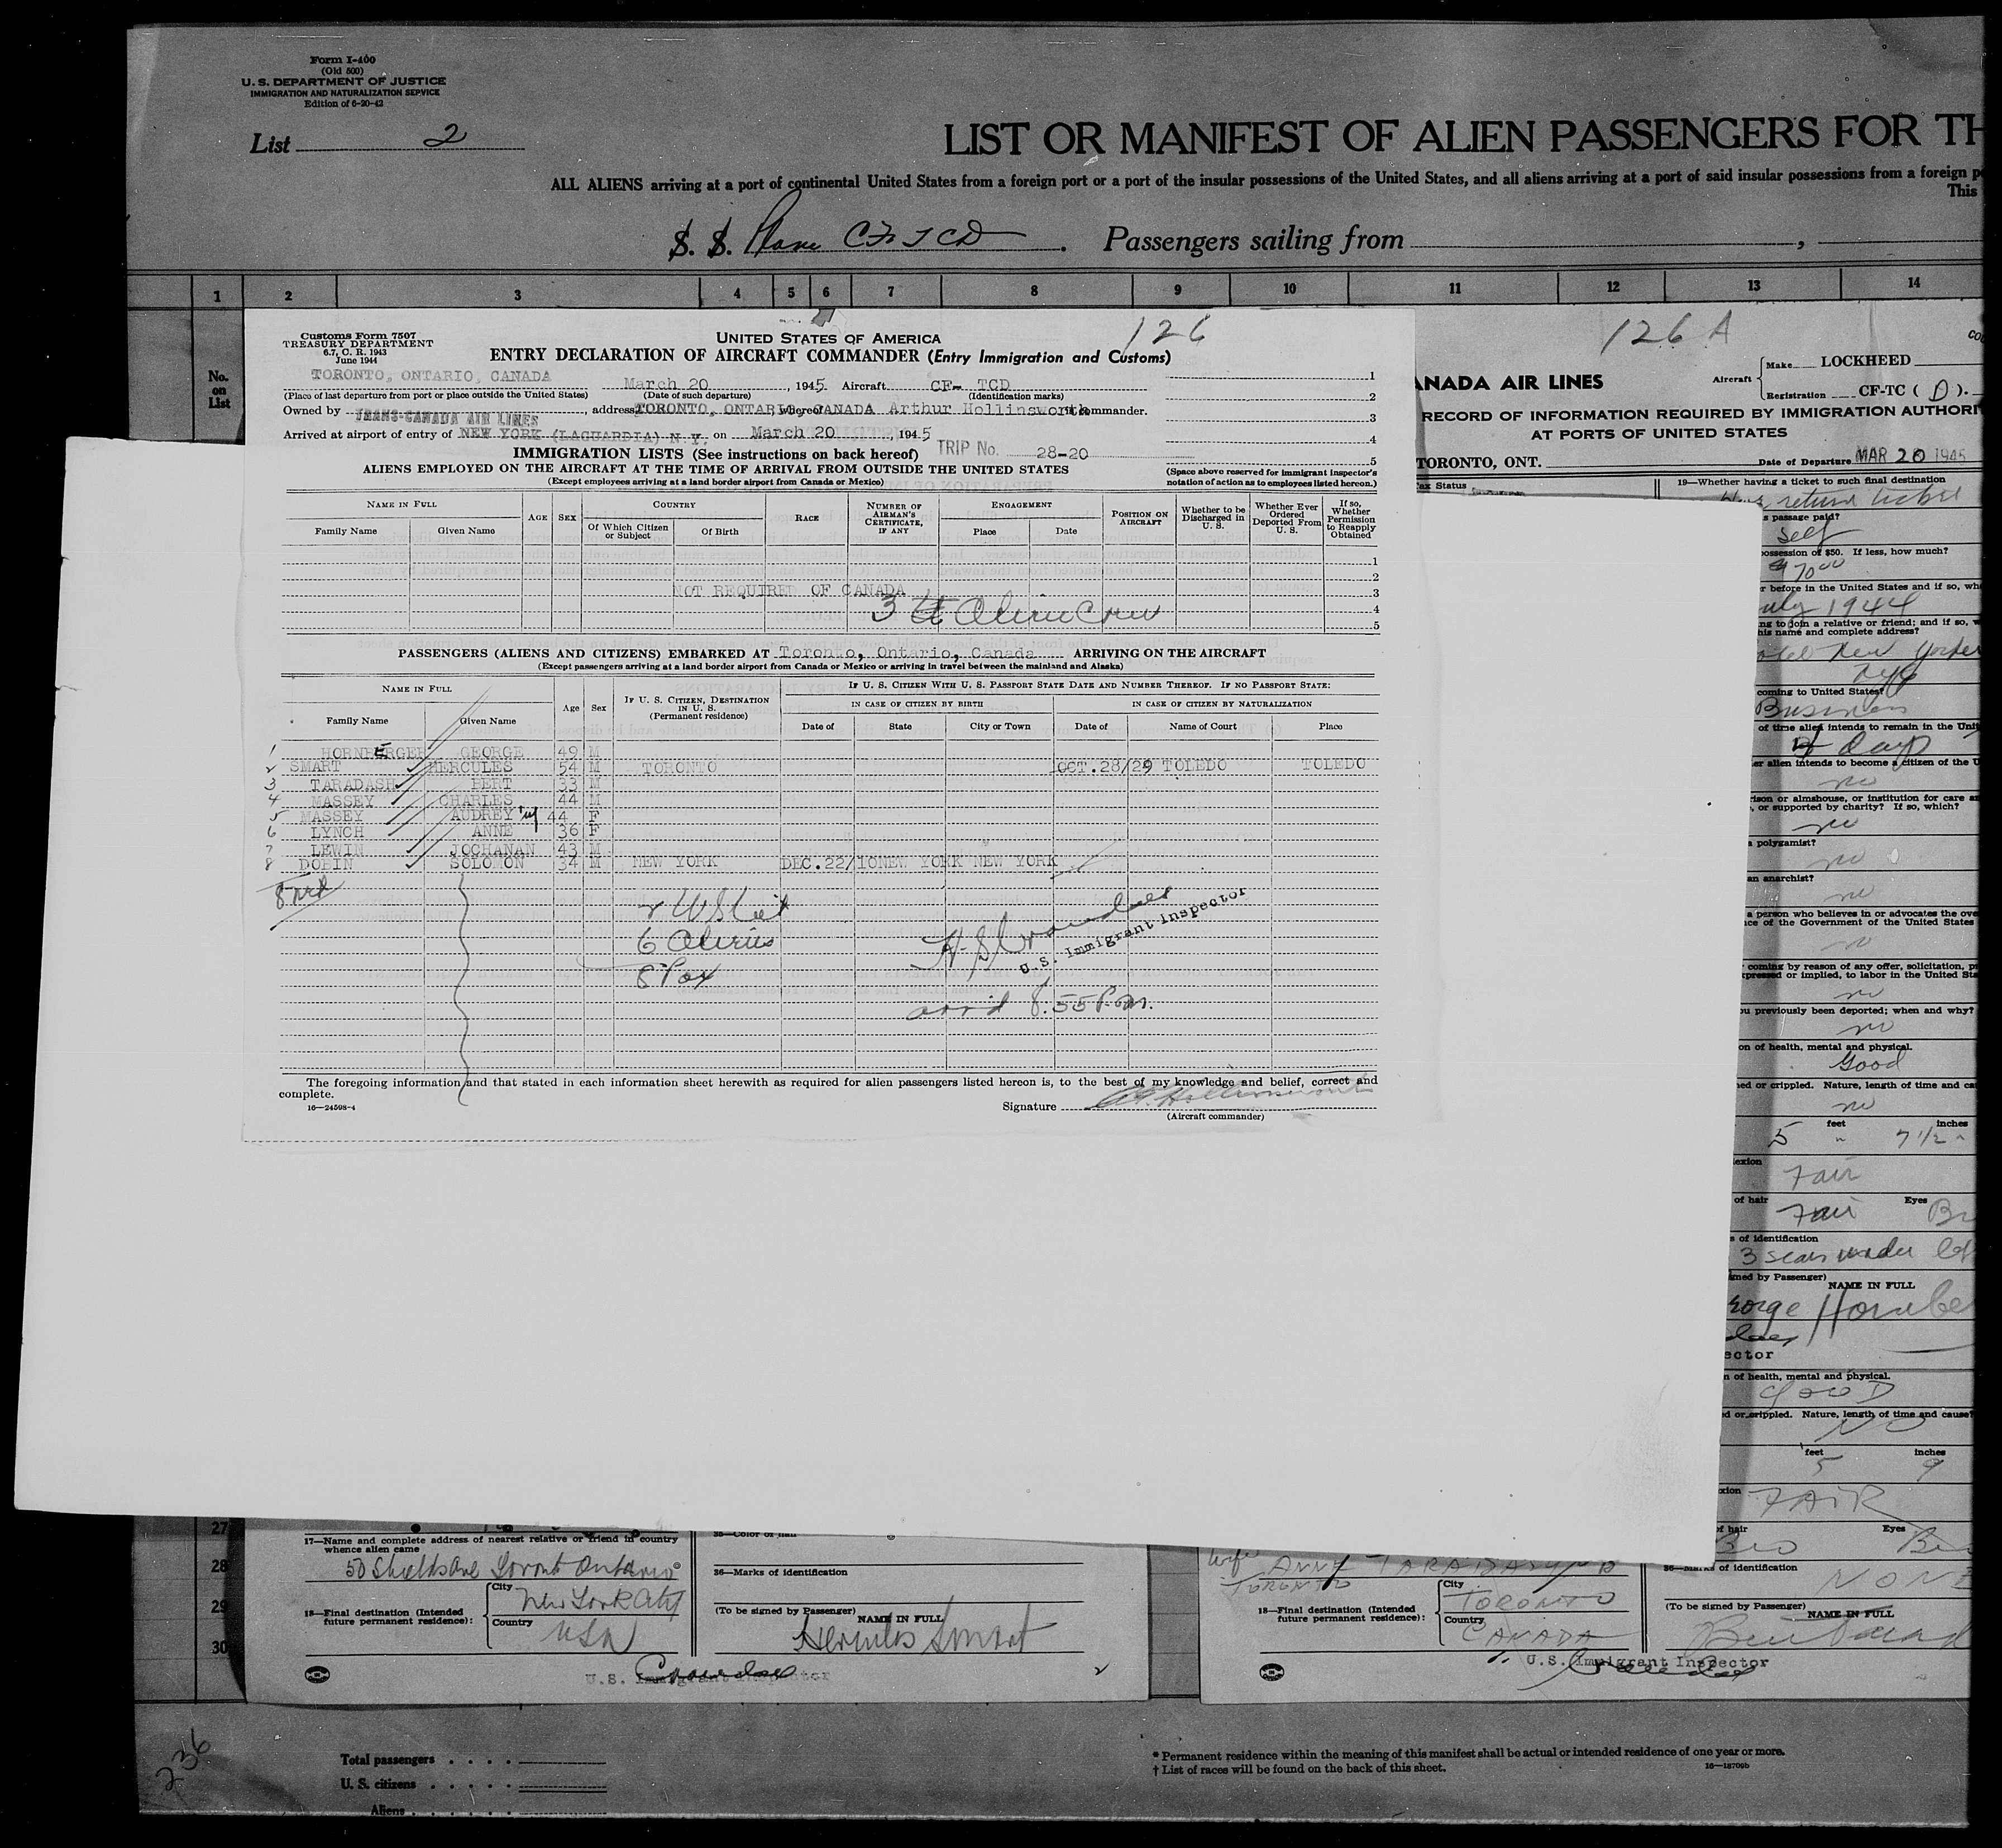 Form I-400
(Old 500)
U. S. DEPARTMENT OF JUSTICE
IMMIGRATION AND NATURALIZATION SERVICE
Edition of 6-20-42
List 2
LIST OR MANIFEST OF ALIEN PASSENGERS FOR TH
ALL ALIENS arriving at a port of continental United States from a foreign port or a port of the insular possessions of the United States, and all aliens arriving at a port of said insular possessions from a foreign p
This
S. S. Plane CF TCD. Passengers sailing from
1 2 3 4 5 6 7 8 9 10 11 12 13 14
No. on List
Customs Form 7507
TREASURY DEPARTMENT
6.7, C. R. 1943
June 1944
UNITED STATES OF AMERICA
126
ENTRY DECLARATION OF AIRCRAFT COMMANDER (Entry Immigration and Customs)
TORONTO, ONTARIO, CANADA March 20, 1945. Aircraft CF- TCD
(Place of last departure from port or place outside the United States) (Date of such departure) (Identification marks)
Owned by TRANS-CANADA AIR LINES, address TORONTO, ONTARIO, CANADA Arthur Hollinsworth commander.
Arrived at airport of entry of NEW YORK (LAGUARDIA) N.Y. on March 20, 1945
IMMIGRATION LISTS (See instructions on back hereof) TRIP No. 28-20
ALIENS EMPLOYED ON THE AIRCRAFT AT THE TIME OF ARRIVAL FROM OUTSIDE THE UNITED STATES
(Except employees arriving at a land border airport from Canada or Mexico)
1
2
3
4
5
(Space above reserved for immigrant inspector's notation of action as to employees listed hereon.)
NAME IN FULL
Family Name Given Name
AGE SEX
COUNTRY
Of Which Citizen or Subject Of Birth
RACE
NUMBER OF AIRMAN'S CERTIFICATE, IF ANY
ENGAGEMENT
Place Date
POSITION ON AIRCRAFT
Whether to be Discharged in U. S.
Whether Ever Ordered Deported From U. S.
If so, Whether Permission to Reapply Obtained
1
2
3
4
5
NOT REQUIRED OF CANADA
3 Alien Crew
PASSENGERS (ALIENS AND CITIZENS) EMBARKED AT Toronto, Ontario, Canada ARRIVING ON THE AIRCRAFT
(Except passengers arriving at a land border airport from Canada or Mexico or arriving in travel between the mainland and Alaska)
NAME IN FULL
Family Name Given Name
Age Sex
IF U. S. CITIZEN, DESTINATION IN U. S.
(Permanent residence)
IF U. S. CITIZEN WITH U. S. PASSPORT STATE DATE AND NUMBER THEREOF. IF NO PASSPORT STATE:
IN CASE OF CITIZEN BY BIRTH IN CASE OF CITIZEN BY NATURALIZATION
Date of State City or Town Date of Name of Court Place
1 HORNBERGER GEORGE 49 M
2 SMART HERCULES 54 M TORONTO OCT.28/29 TOLEDO TOLEDO
3 TARADASH BERT 33 M
4 MASSEY CHARLES 44 M
5 MASSEY AUDREY 44 F
6 LYNCH ANNE 36 F
7 LEWIN JOCHANAN 43 M
8 DOBIN SOLOMON 34 M NEW YORK DEC.22/10 NEW YORK NEW YORK
6 Aliens
8 Pax
U.S. Immigrant Inspector
arr'd 8:55 P.m.
The foregoing information and that stated in each information sheet herewith as required for alien passengers listed hereon is, to the best of my knowledge and belief, correct and complete.
16—24598-4
Signature
(Aircraft commander)
126 A
ANADA AIR LINES
Aircraft
Make LOCKHEED
Registration CF-TC ( D ).
RECORD OF INFORMATION REQUIRED BY IMMIGRATION AUTHORI
AT PORTS OF UNITED STATES
TORONTO, ONT. Date of Departure MAR 20 1945
ax Status
19—Whether having a ticket to such final destination
return ticket
s passage paid?
self
ossession of $50. If less, how much?
$70.00
r before in the United States and if so, wh
uly 1944
ng to join a relative or friend; and if so, w
his name and complete address?
otel New Yorker
nyc
coming to United States?
Business
of time alien intends to remain in the Unit
days
er alien intends to become a citizen of the U
no
rison or almshouse, or institution for care a
, or supported by charity? If so, which?
no
a polygamist?
no
an anarchist?
no
a person who believes in or advocates the ove
ce of the Government of the United States
no
coming by reason of any offer, solicitation, p
pressed or implied, to labor in the United Sta
no
ou previously been deported; when and why?
no
on of health, mental and physical.
Good
ed or crippled. Nature, length of time and ca
no
5 feet 7 1/2 inches
lexion
Fair
of hair Fair Eyes Br
s of identification
3 scars under lef
gned by Passenger) NAME IN FULL
eorge Hornbe
ector
n of health, mental and physical.
GOOD
ed or crippled. Nature, length of time and cause?
NO
feet 5 inches 9
xion FAIR
of hair Bro Eyes Br
27
28
29
30
17—Name and complete address of nearest relative or friend in country whence alien came
50 Shields Ave Toronto Ontario
18—Final destination (Intended future permanent residence):
City New York City
Country USA
35—Color of hair
36—Marks of identification
(To be signed by Passenger)
NAME IN FULL
Hercules Smart
U.S. Immigrant Inspector
wife ANNE TARADASH
TORONTO
18—Final destination (Intended future permanent residence):
City TORONTO
Country CANADA
36—Marks of identification
NONE
(To be signed by Passenger)
NAME IN FULL
U.S. Immigrant Inspector
236
Total passengers
U. S. citizens
Aliens
* Permanent residence within the meaning of this manifest shall be actual or intended residence of one year or more.
† List of races will be found on the back of this sheet.
16—18709b